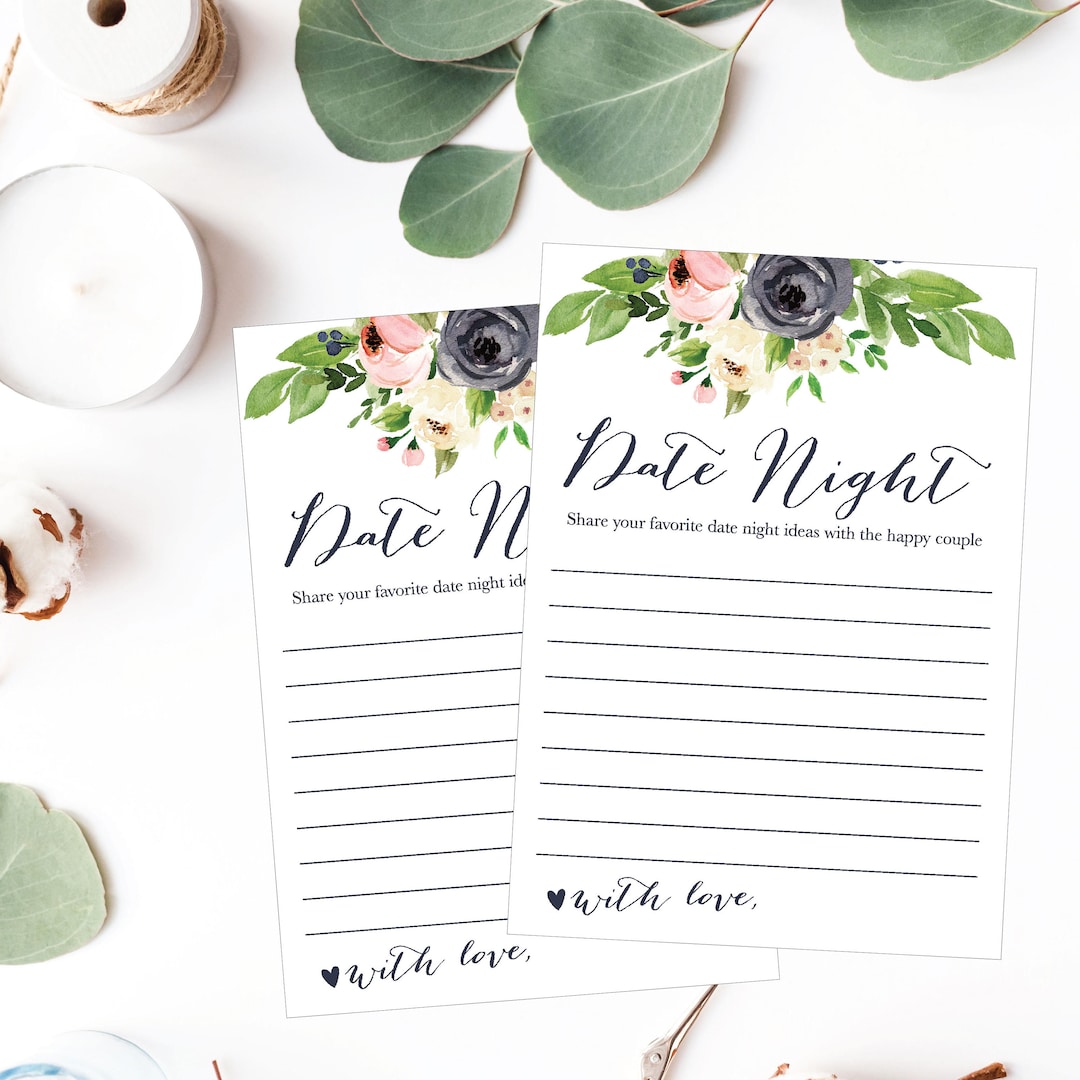 Date Night
Share your favorite date night ideas with the happy couple
with love,
Date N
Share your favorite date night ide
with love,